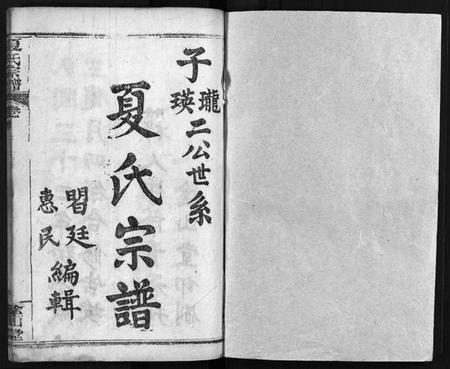 子瓏瑛二公世系
夏氏宗譜
習廷
惠民
編輯
夏氏宗譜